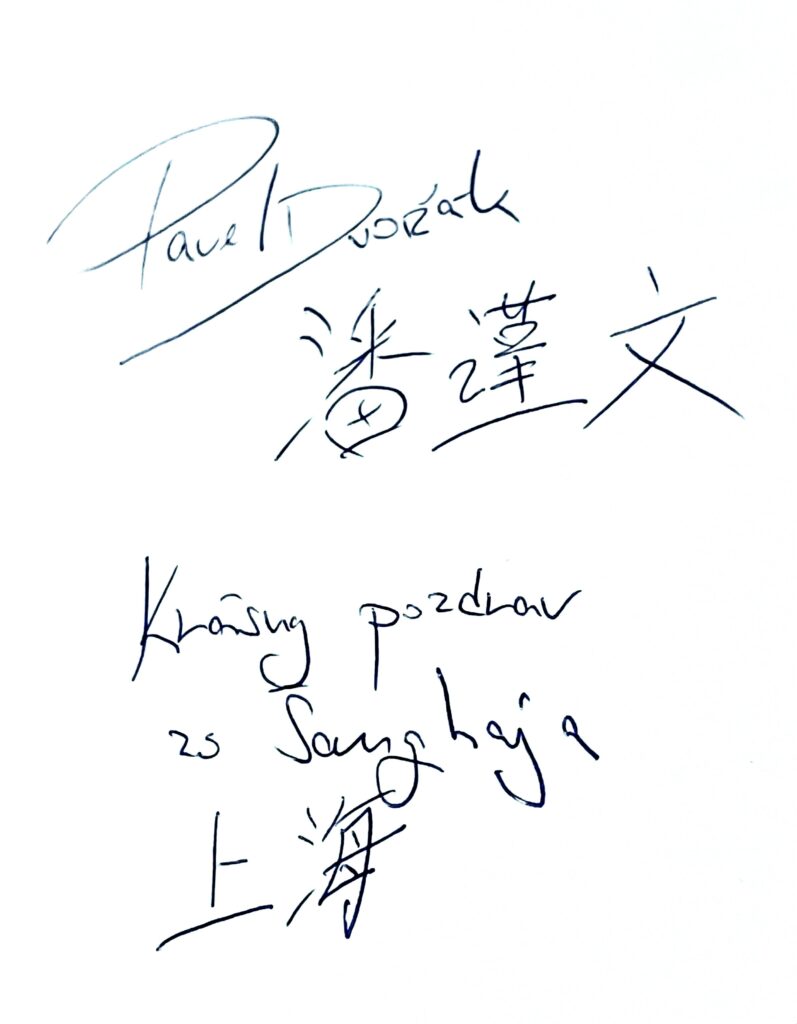 Pavel Dvořák
潘達文
Krásny pozdrav
zo Šanghaja
上海